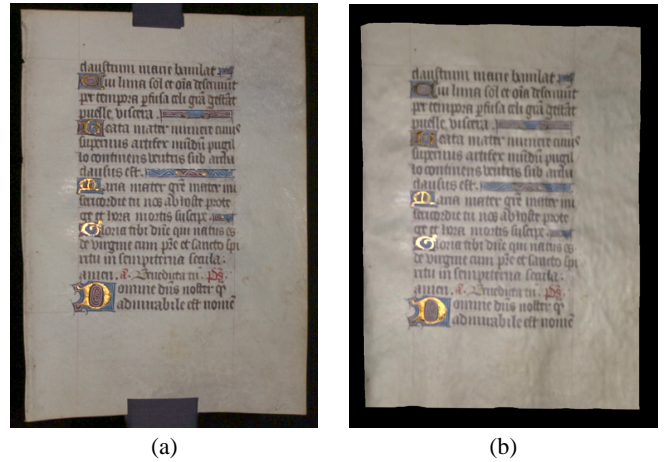 claustrum marie baiulat
Cui luna sol et oĩa deseruiunt
per tempora ꝑfusa celi grã̃ gestãt
puelle viscera
Beata mater munere cuius
supernus artifex mũdũ pugil
lo continens ventris sub archa
clausus est.
Maria mater grẽ mater mi
sericordie tu nos ab hoste prote
ge et hora mortis suscipe.
Gloria tibi dñe qui natus es
de virgine cum pr̃e et sancto spi
ritu in sempiterna secula.
amen. a. Benedicta tu. ps.
Domine dñs noster q̃
admirabile est nomẽ
(a)
claustrum marie baiulat
Cui luna sol et oĩa deseruiunt
per tempora ꝑfusa celi grã gestãt
puelle viscera
Beata mater munere cuius
supernus artifex mũdũ pugil
lo continens ventris sub archa
clausus est.
Maria mater grẽ mater mi
sericordie tu nos ab hoste prote
ge et hora mortis suscipe.
Gloria tibi dñe qui natus es
de virgine cum pr̃e et sancto spi
ritu in sempiterna secula.
amen. a. Benedicta tu. ps.
Domine dñs noster q̃
admirabile est nomẽ
(b)